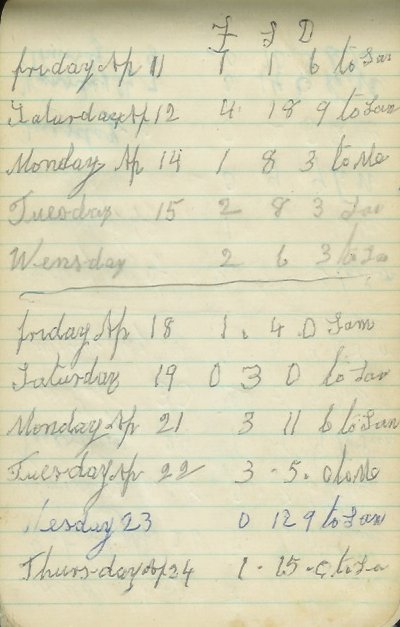 £ S D
friday Ap 11 1 1 6 to Sam
Saturday Ap 12 4 18 9 to Sam
Monday Ap 14 1 8 3 to Me
Tuesday 15 2 8 3 Sam
Wensday 2 6 3 to Sa
friday Ap 18 1. 4 0 Sam
Saturday 19 0 3 0 to Sam
Monday Ap 21 3 11 6 to Sam
Tuesday Ap 22 3 - 5. 0 to Me
Wesday 23 0 12 9 to Sam
Thursday Ap 24 1 - 15 - to Sa